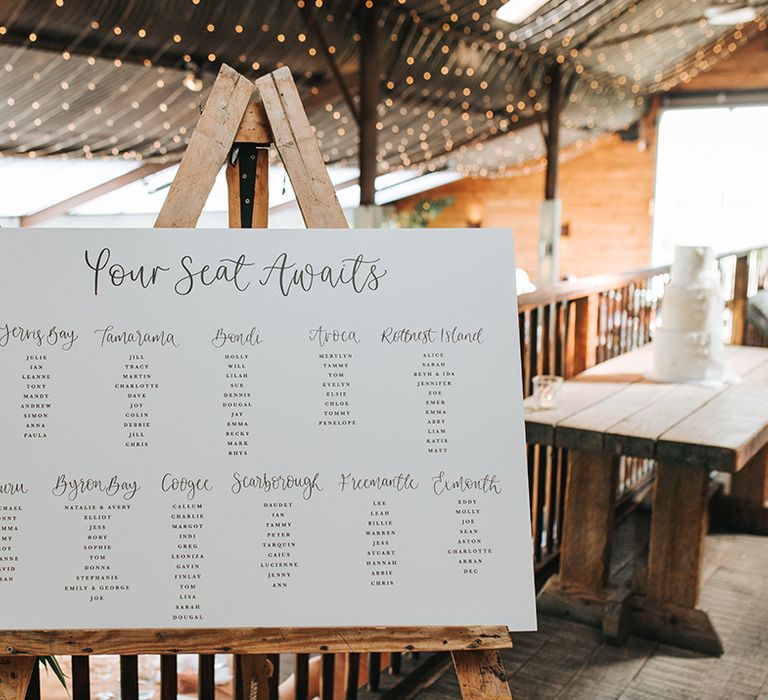 Your Seat Awaits
Jervis Bay
JULIE
IAN
LEANNE
TONY
MANDY
ANDREW
SIMON
ANNA
PAULA
Tamarama
JILL
TRACY
MARTIN
CHARLOTTE
DAVE
JOY
COLIN
DEBBIE
JILL
CHRIS
Bondi
HOLLY
WILL
LILAH
SUE
DENNIS
DOUGAL
JAY
EMMA
BECKY
MARK
RHYS
Avoca
MERYLYN
TAMMY
TOM
EVELYN
ELSIE
CHLOE
TOMMY
PENELOPE
Rottnest Island
ALICE
SARAH
BETH & IDA
JENNIFER
ZOE
EMER
EMMA
ABBY
LIAM
KATIE
MATT
Byron Bay
NATALIE & AVERY
ELLIOT
JESS
RORY
SOPHIE
TOM
DONNA
STEPHANIE
EMILY & GEORGE
JOE
Coogee
CALLUM
CHARLIE
MARGOT
INDI
GREG
LEONIZA
GAVIN
FINLAY
TOM
LISA
SARAH
DOUGAL
Scarborough
DAUDET
IAN
TAMMY
PETER
TARQUIN
CAIUS
LUCIENNE
JENNY
ANN
Freemantle
LEE
LEAH
BILLIE
WARREN
JESS
STUART
HANNAH
ABBIE
CHRIS
Exmouth
EDDY
MOLLY
JOE
SEAN
ASTON
CHARLOTTE
ARRAN
DEC